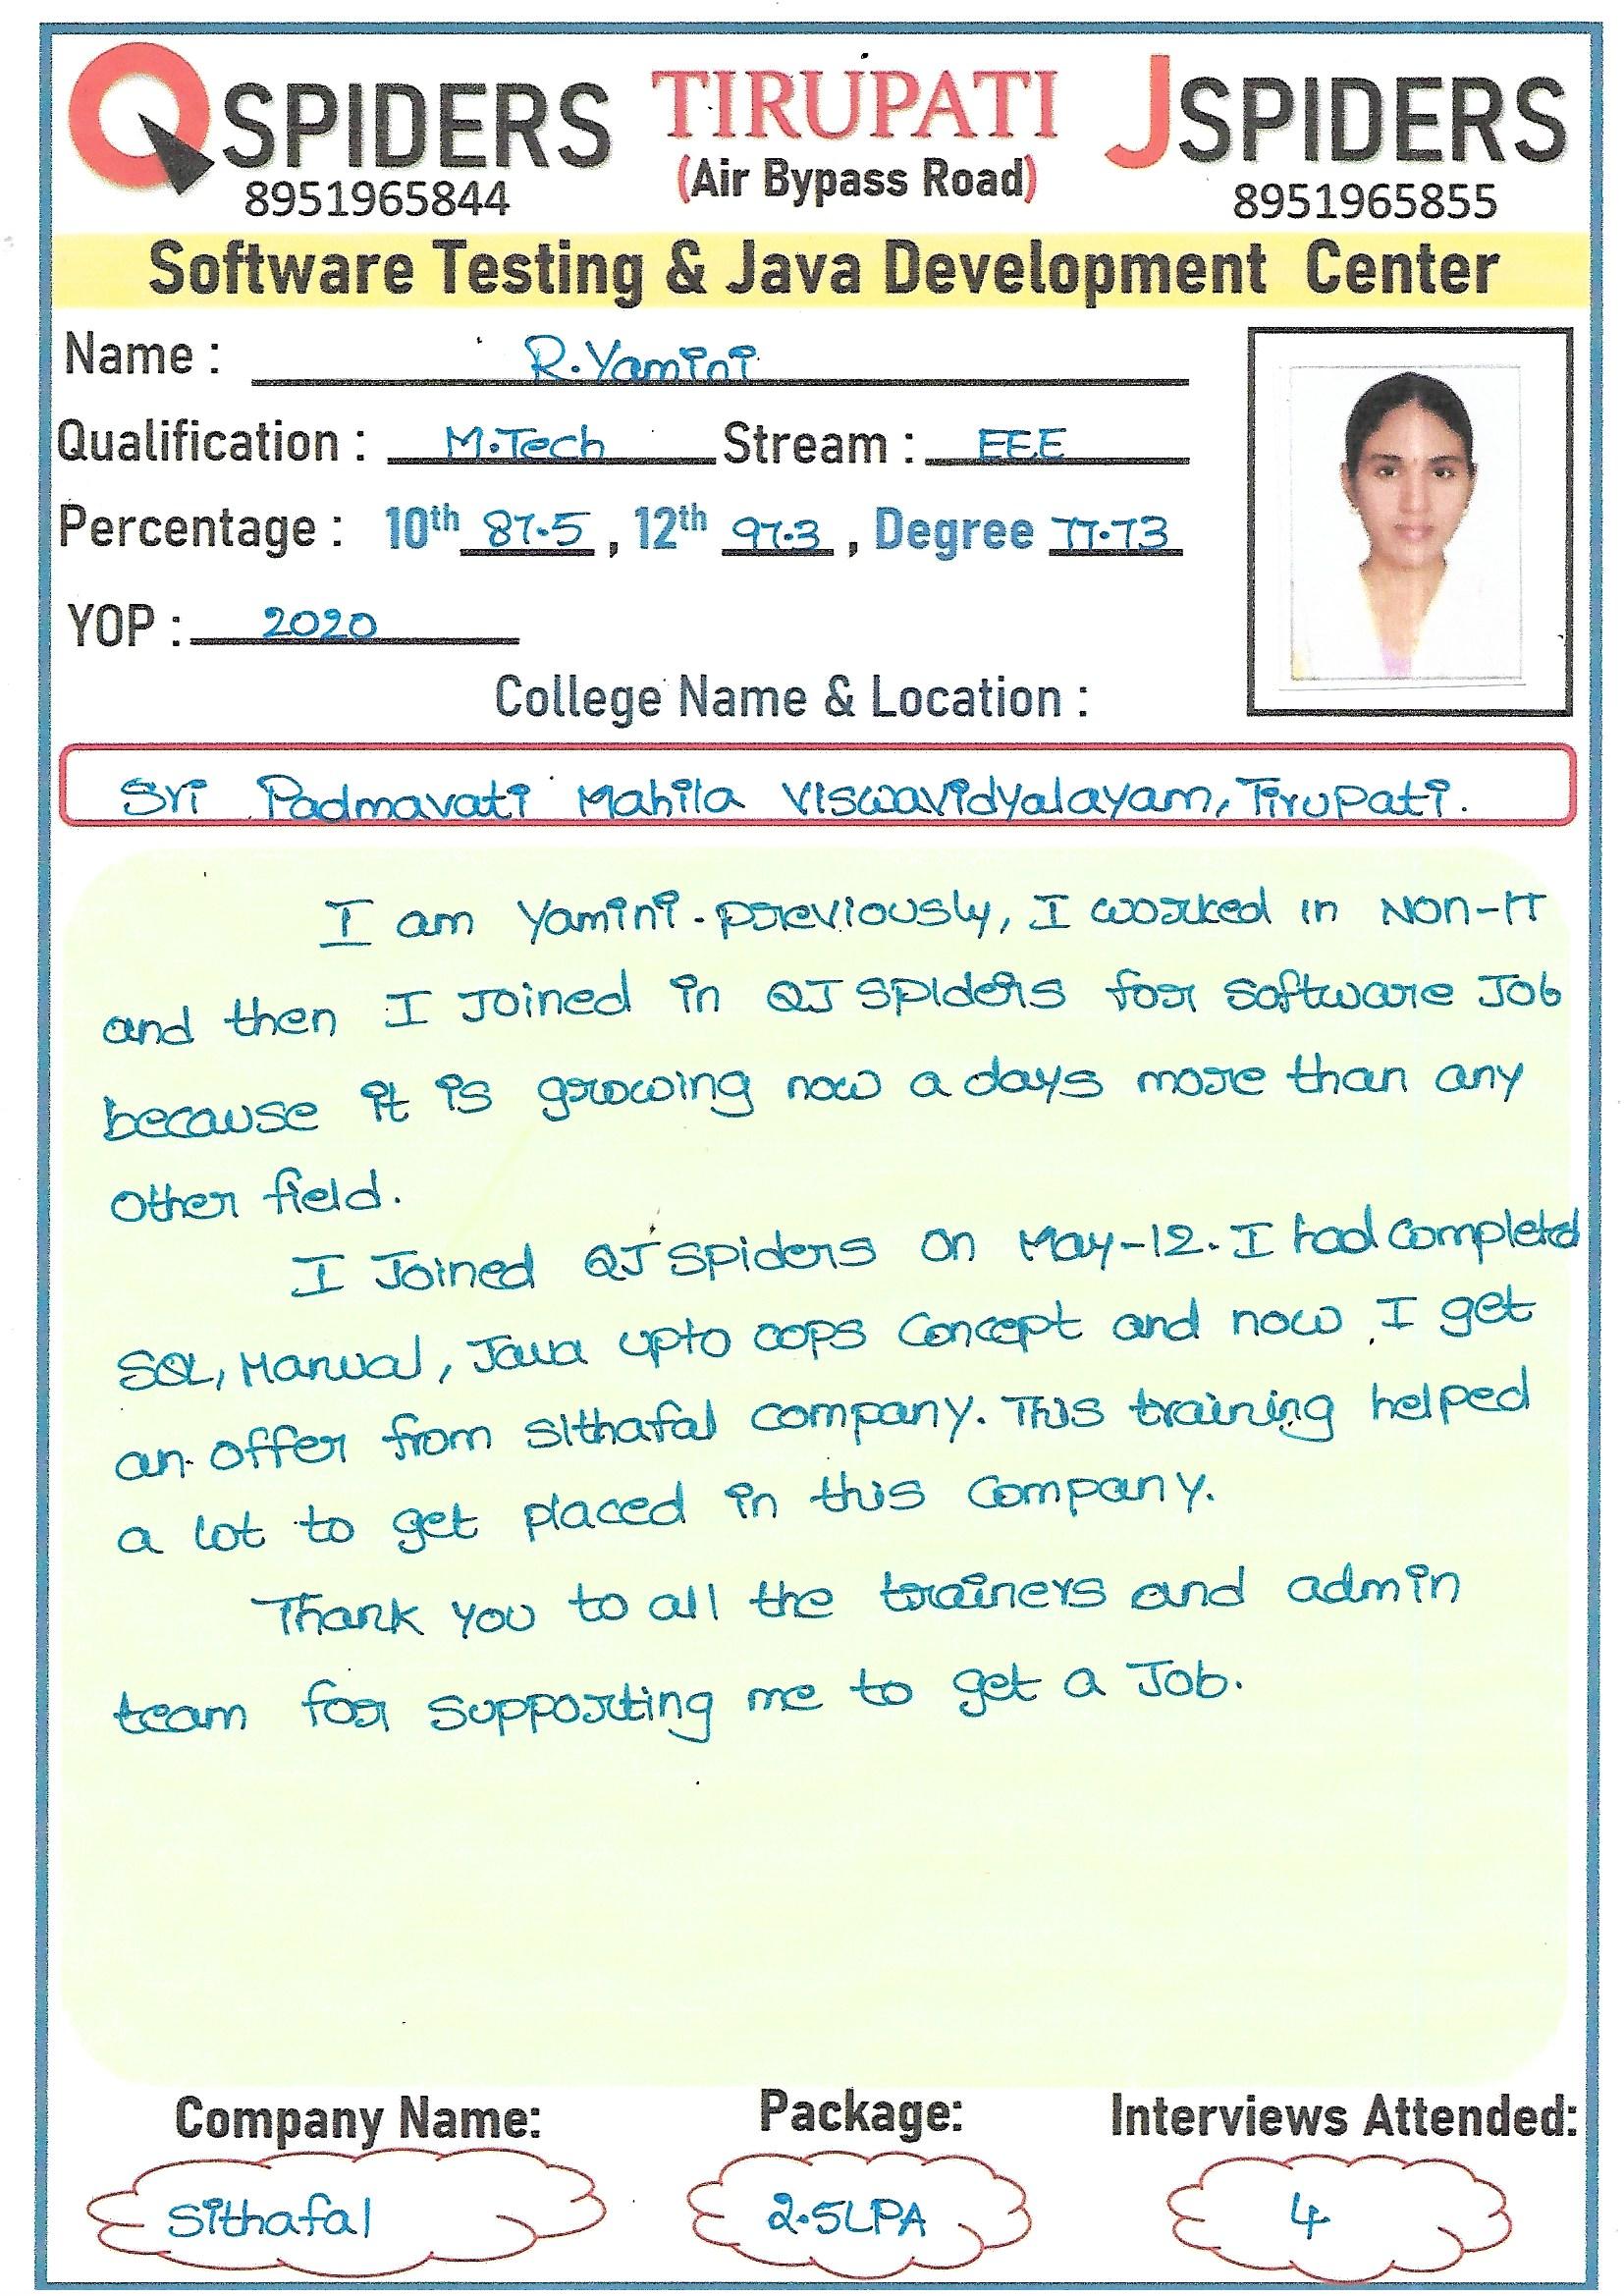 QSPIDERS TIRUPATI JSPIDERS
8951965844 (Air Bypass Road) 8951965855
Software Testing & Java Development Center
Name : R.Yamini
Qualification : M.Tech Stream : EEE
Percentage : 10th 87.5 , 12th 97.3 , Degree 77.73
YOP : 2020
College Name & Location :
Sri Padmavati Mahila Viswavidyalayam, Tirupati.
I am Yamini. previously, I worked in Non-IT
and then I Joined in QJ Spiders for Software Job
because it is growing now a days more than any
Other field.
I Joined QJ Spiders on May-12. I had Completed
SQL, Manual, Java upto oops Concept and now, I get
an offer from Sithafal company. This training helped
a lot to get placed in this Company.
Thank you to all the trainers and admin
team for Supporting me to get a Job.
Company Name: Package: Interviews Attended:
Sithafal 2.5LPA 4